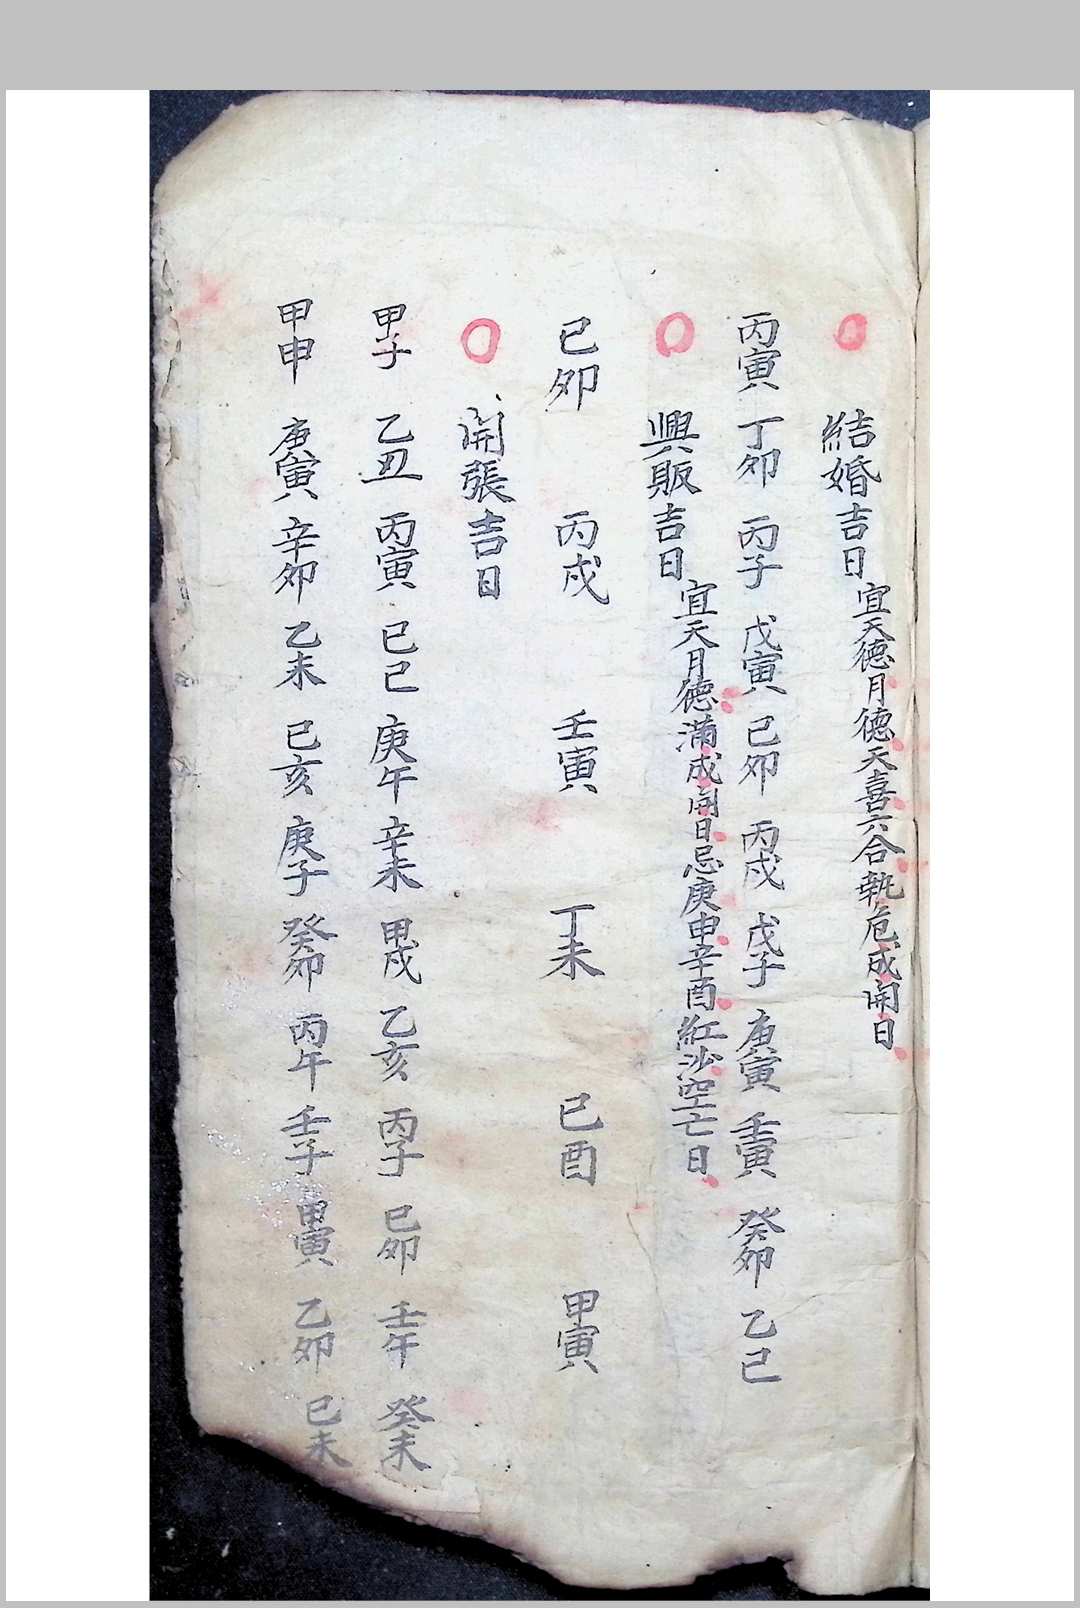 結婚吉日宜天德月德天喜六合執危成開日
丙寅 丁卯 丙子 戊寅 己卯 丙戌 戊子 庚寅 壬寅 癸卯 乙巳
興販吉日宜天月德滿成開日忌庚申辛酉紅沙空亡日
己卯 丙戌 壬寅 丁未 己酉 甲寅
開張吉日
甲子 乙丑 丙寅 己巳 庚午 辛未 甲戌 乙亥 丙子 己卯 壬午 癸未
甲申 庚寅 辛卯 乙未 己亥 庚子 癸卯 丙午 壬子 甲寅 乙卯 己未